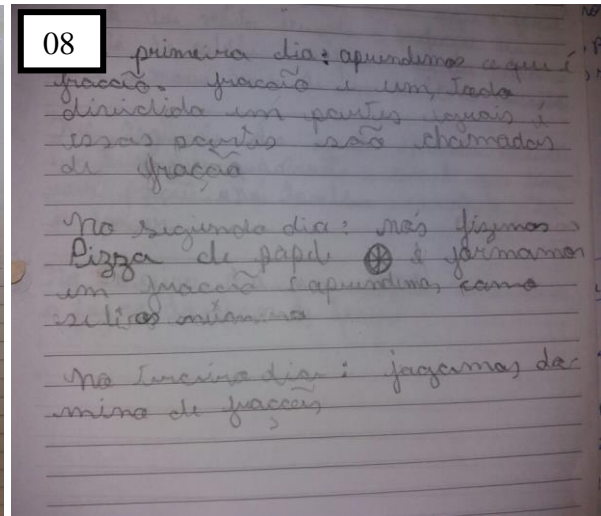 08
primeira dia: aprendemos o que é
fracão. fracão é um, Todo
dividido em partes iguais é
essas partes são chamadas
de fração
No segundo dia: nós fizemos
Pizza de papel é formamos
um fracão e aprendemos como
se lir os
No Terceiro dia: jogamos do-
mino de fracções